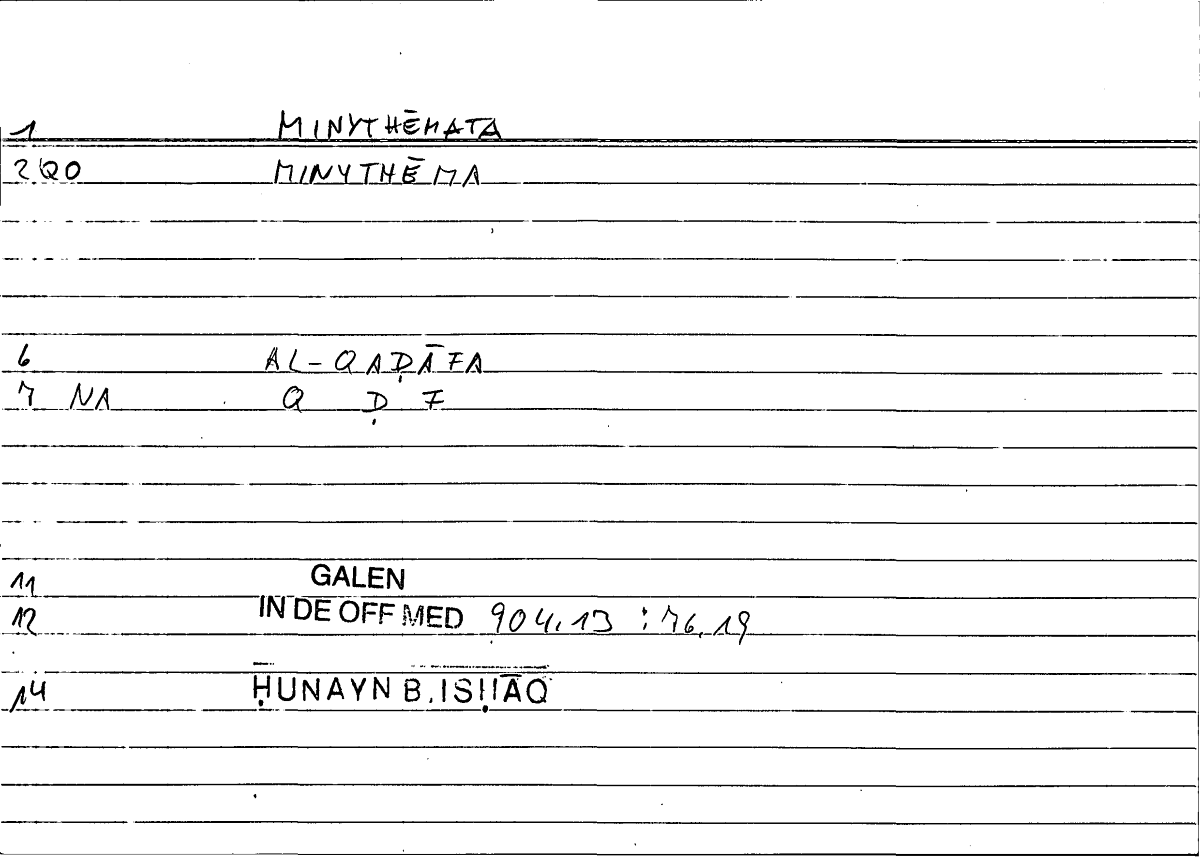 1 MINYTHĒMATA
2 QO MINYTHĒMA
6 AL-QAḌĀFA
7 NA Q Ḍ F
11 GALEN
12 IN DE OFF MED 904,13 : 76,19
14 ḤUNAYN B. ISḤĀQ